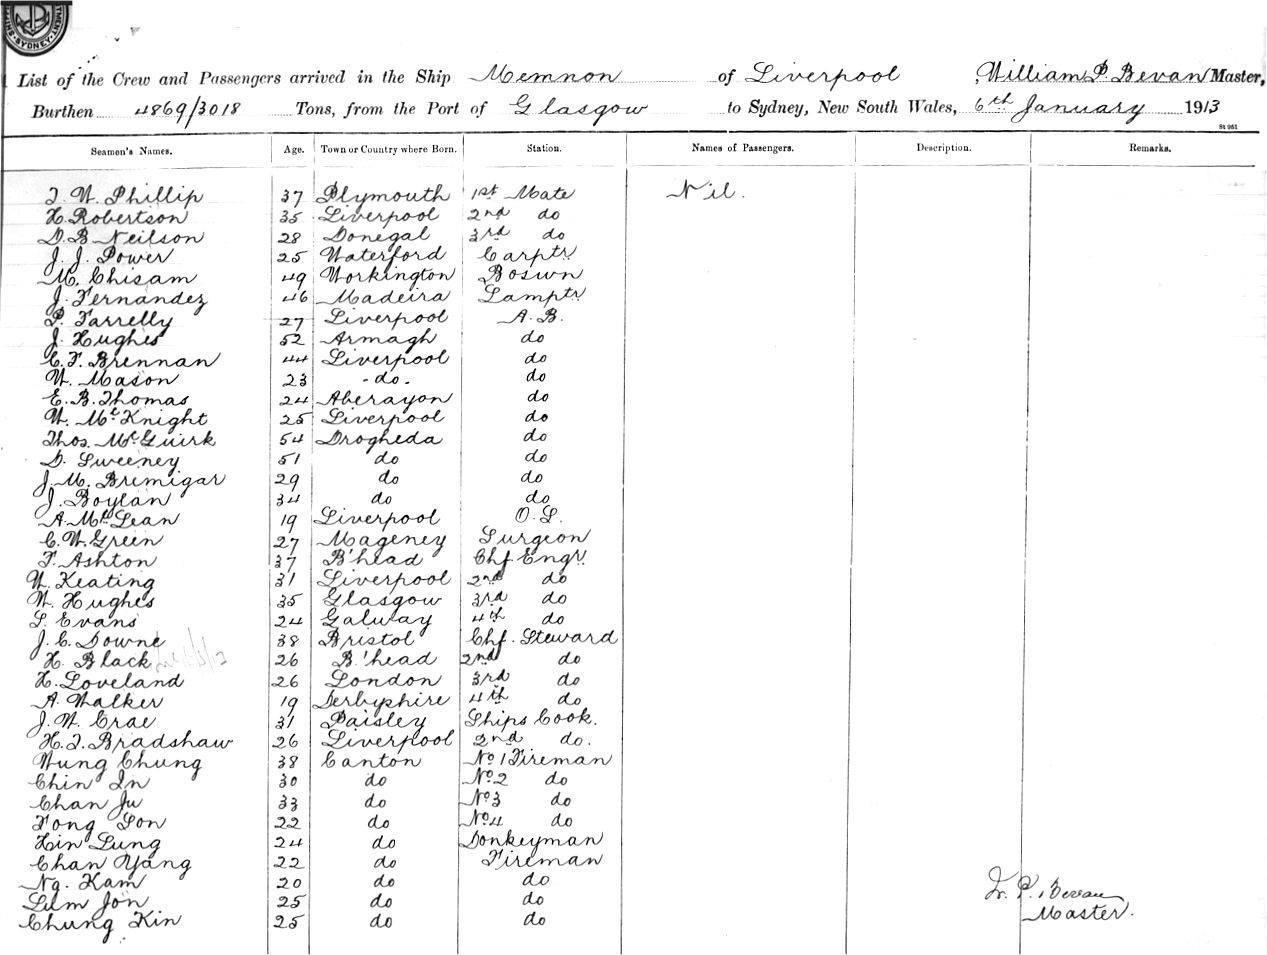 SYDNEY
List of the Crew and Passengers arrived in the Ship Memnon of Liverpool, William P. Bevan Master,
Burthen 4869/3018 Tons, from the Port of Glasgow to Sydney, New South Wales, 6th January 1913
St 951
Seamen's Names. Age. Town or Country where Born. Station. Names of Passengers. Description. Remarks.
J. W. Phillip 37 Plymouth 1st Mate Nil.
H. Robertson 35 Liverpool 2nd do
D. B. Neilson 28 Donegal 3rd do
J. J. Power 25 Waterford Carptr
M. Chisam 49 Workington Boswn
J. Fernandez 46 Madeira Lamptr
P. Farrelly 27 Liverpool A.B.
J. Hughes 52 Armagh do
C. F. Brennan 44 Liverpool do
W. Mason 23 - do. do
E. B. Thomas 24 Aberayon do
W. McKnight 25 Liverpool do
Thos. McGuirk 54 Drogheda do
D. Sweeney 51 do do
J. M. Bremigar 29 do do
J. Boylan 34 do do
A. McLean 19 Liverpool O.S.
C. W. Green 27 Mageney Surgeon
F. Ashton 37 B'head Chf Engr.
W. Keating 31 Liverpool 2nd do
W. Hughes 35 Glasgow 3rd do
S. Evans 24 Galway 4th do
J. C. Downe 38 Bristol Chf. Steward
H. Black 26 B'head 2nd do
H. Loveland 26 London 3rd do
A. Walker 19 Derbyshire 4th do
J. W. Crae 31 Paisley Ships Cook.
H. J. Bradshaw 26 Liverpool 2nd do.
Wung Chung 38 Canton No 1 Fireman
Chin In 30 do No 2 do
Chan Ju 33 do No 3 do
Fong Son 22 do No 4 do
Hin Lung 24 do Donkeyman
Chan Yang 22 do Fireman
Ng. Kam 20 do do
Lum Jon 25 do do
Chung Kin 25 do do
W. P. Bevan
Master.